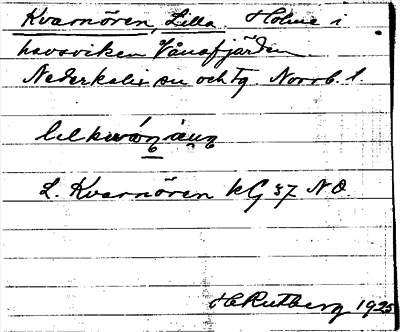 Kvarnören, Lilla. Holme i
havsviken Vånafjärden
Nederkalix sn och tg. Norrb. l.
L. Kvarnören kG 37 N.O.
H Rutberg 1925